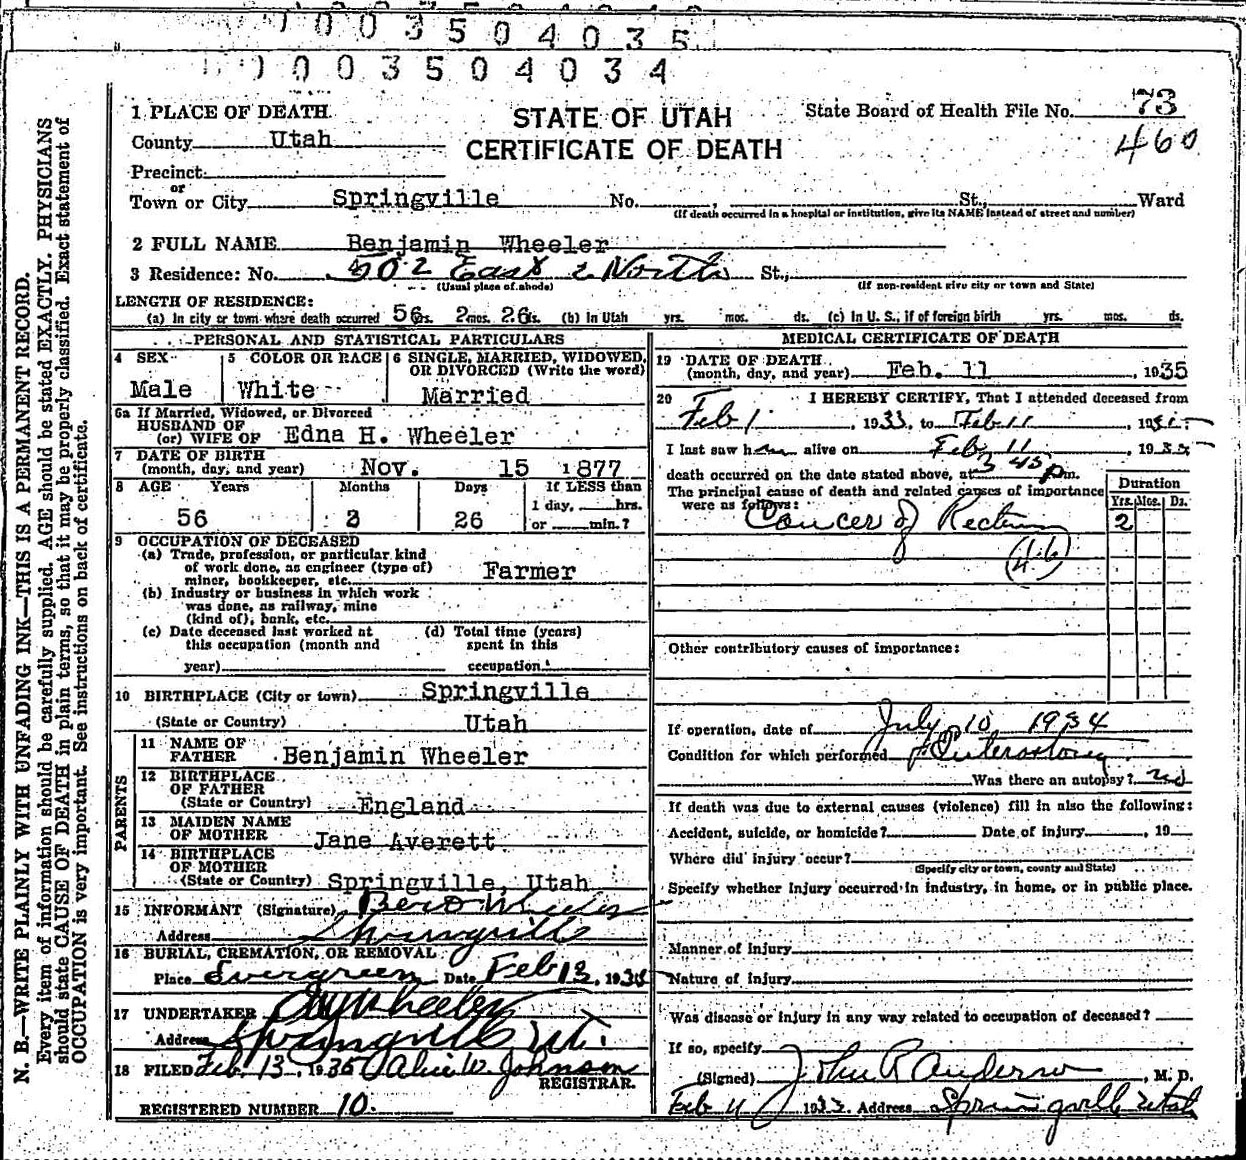 0 0 3 5 0 4 0 3 5
0 0 3 5 0 4 0 3 4
STATE OF UTAH
CERTIFICATE OF DEATH
State Board of Health File No. 73
460
1 PLACE OF DEATH
County Utah
Precinct
or
Town or City Springville No. , St., Ward
(If death occurred in a hospital or institution, give its NAME instead of street and number)
2 FULL NAME Benjamin Wheeler
3 Residence: No. 502 East 2 North St.,
(Usual place of abode) (If non-resident give city or town and State)
LENGTH OF RESIDENCE:
(a) In city or town where death occurred 56 yrs. 2 mos. 26 ds. (b) In Utah yrs. mos. ds. (c) In U. S., if of foreign birth yrs. mos. ds.
PERSONAL AND STATISTICAL PARTICULARS
4 SEX Male
5 COLOR OR RACE White
6 SINGLE, MARRIED, WIDOWED, OR DIVORCED (Write the word) Married
6a If Married, Widowed, or Divorced
HUSBAND OF
(or) WIFE OF Edna H. Wheeler
7 DATE OF BIRTH
(month, day, and year) Nov. 15 1877
8 AGE Years Months Days If LESS than
1 day, hrs.
56 2 26 or min.?
9 OCCUPATION OF DECEASED
(a) Trade, profession, or particular kind
of work done, as engineer (type of)
miner, bookkeeper, etc. Farmer
(b) Industry or business in which work
was done, as railway, mine
(kind of), bank, etc.
(c) Date deceased last worked at
this occupation (month and
year)
(d) Total time (years)
spent in this
occupation
10 BIRTHPLACE (City or town) Springville
(State or Country) Utah
PARENTS
11 NAME OF
FATHER Benjamin Wheeler
12 BIRTHPLACE
OF FATHER
(State or Country) England
13 MAIDEN NAME
OF MOTHER Jane Averett
14 BIRTHPLACE
OF MOTHER
(State or Country) Springville, Utah
15 INFORMANT (Signature) Wheeler
Address Springville
16 BURIAL, CREMATION, OR REMOVAL
Place Evergreen Date Feb 13, 1935
17 UNDERTAKER Wheeler
Address Springville Ut.
18 FILED Feb. 13, 1935 Alice W. Johnson
REGISTRAR.
REGISTERED NUMBER 10.
MEDICAL CERTIFICATE OF DEATH
19 DATE OF DEATH
(month, day, and year) Feb. 11, 1935
20 I HEREBY CERTIFY, That I attended deceased from
Feb 1, 1933, to Feb 11, 1935
I last saw him alive on Feb 11, 1935
death occurred on the date stated above, at 3 45 p m.
The principal cause of death and related causes of importance
were as follows:
Duration
Yrs. Mos. Ds.
Cancer of Rectum 2
(46)
Other contributory causes of importance:
If operation, date of July 10 1934
Condition for which performed
Was there an autopsy? no
If death was due to external causes (violence) fill in also the following:
Accident, suicide, or homicide? Date of injury , 19
Where did injury occur?
(Specify city or town, county and State)
Specify whether injury occurred in industry, in home, or in public place.
Manner of injury
Nature of injury
Was disease or injury in any way related to occupation of deceased?
If so, specify
(Signed) John R Anderson, M. D.
Feb 11 Address Springville Utah
N. B.—WRITE PLAINLY WITH UNFADING INK—THIS IS A PERMANENT RECORD.
Every item of information should be carefully supplied. AGE should be stated EXACTLY. PHYSICIANS
should state CAUSE OF DEATH in plain terms, so that it may be properly classified. Exact statement of
OCCUPATION is very important. See instructions on back of certificate.